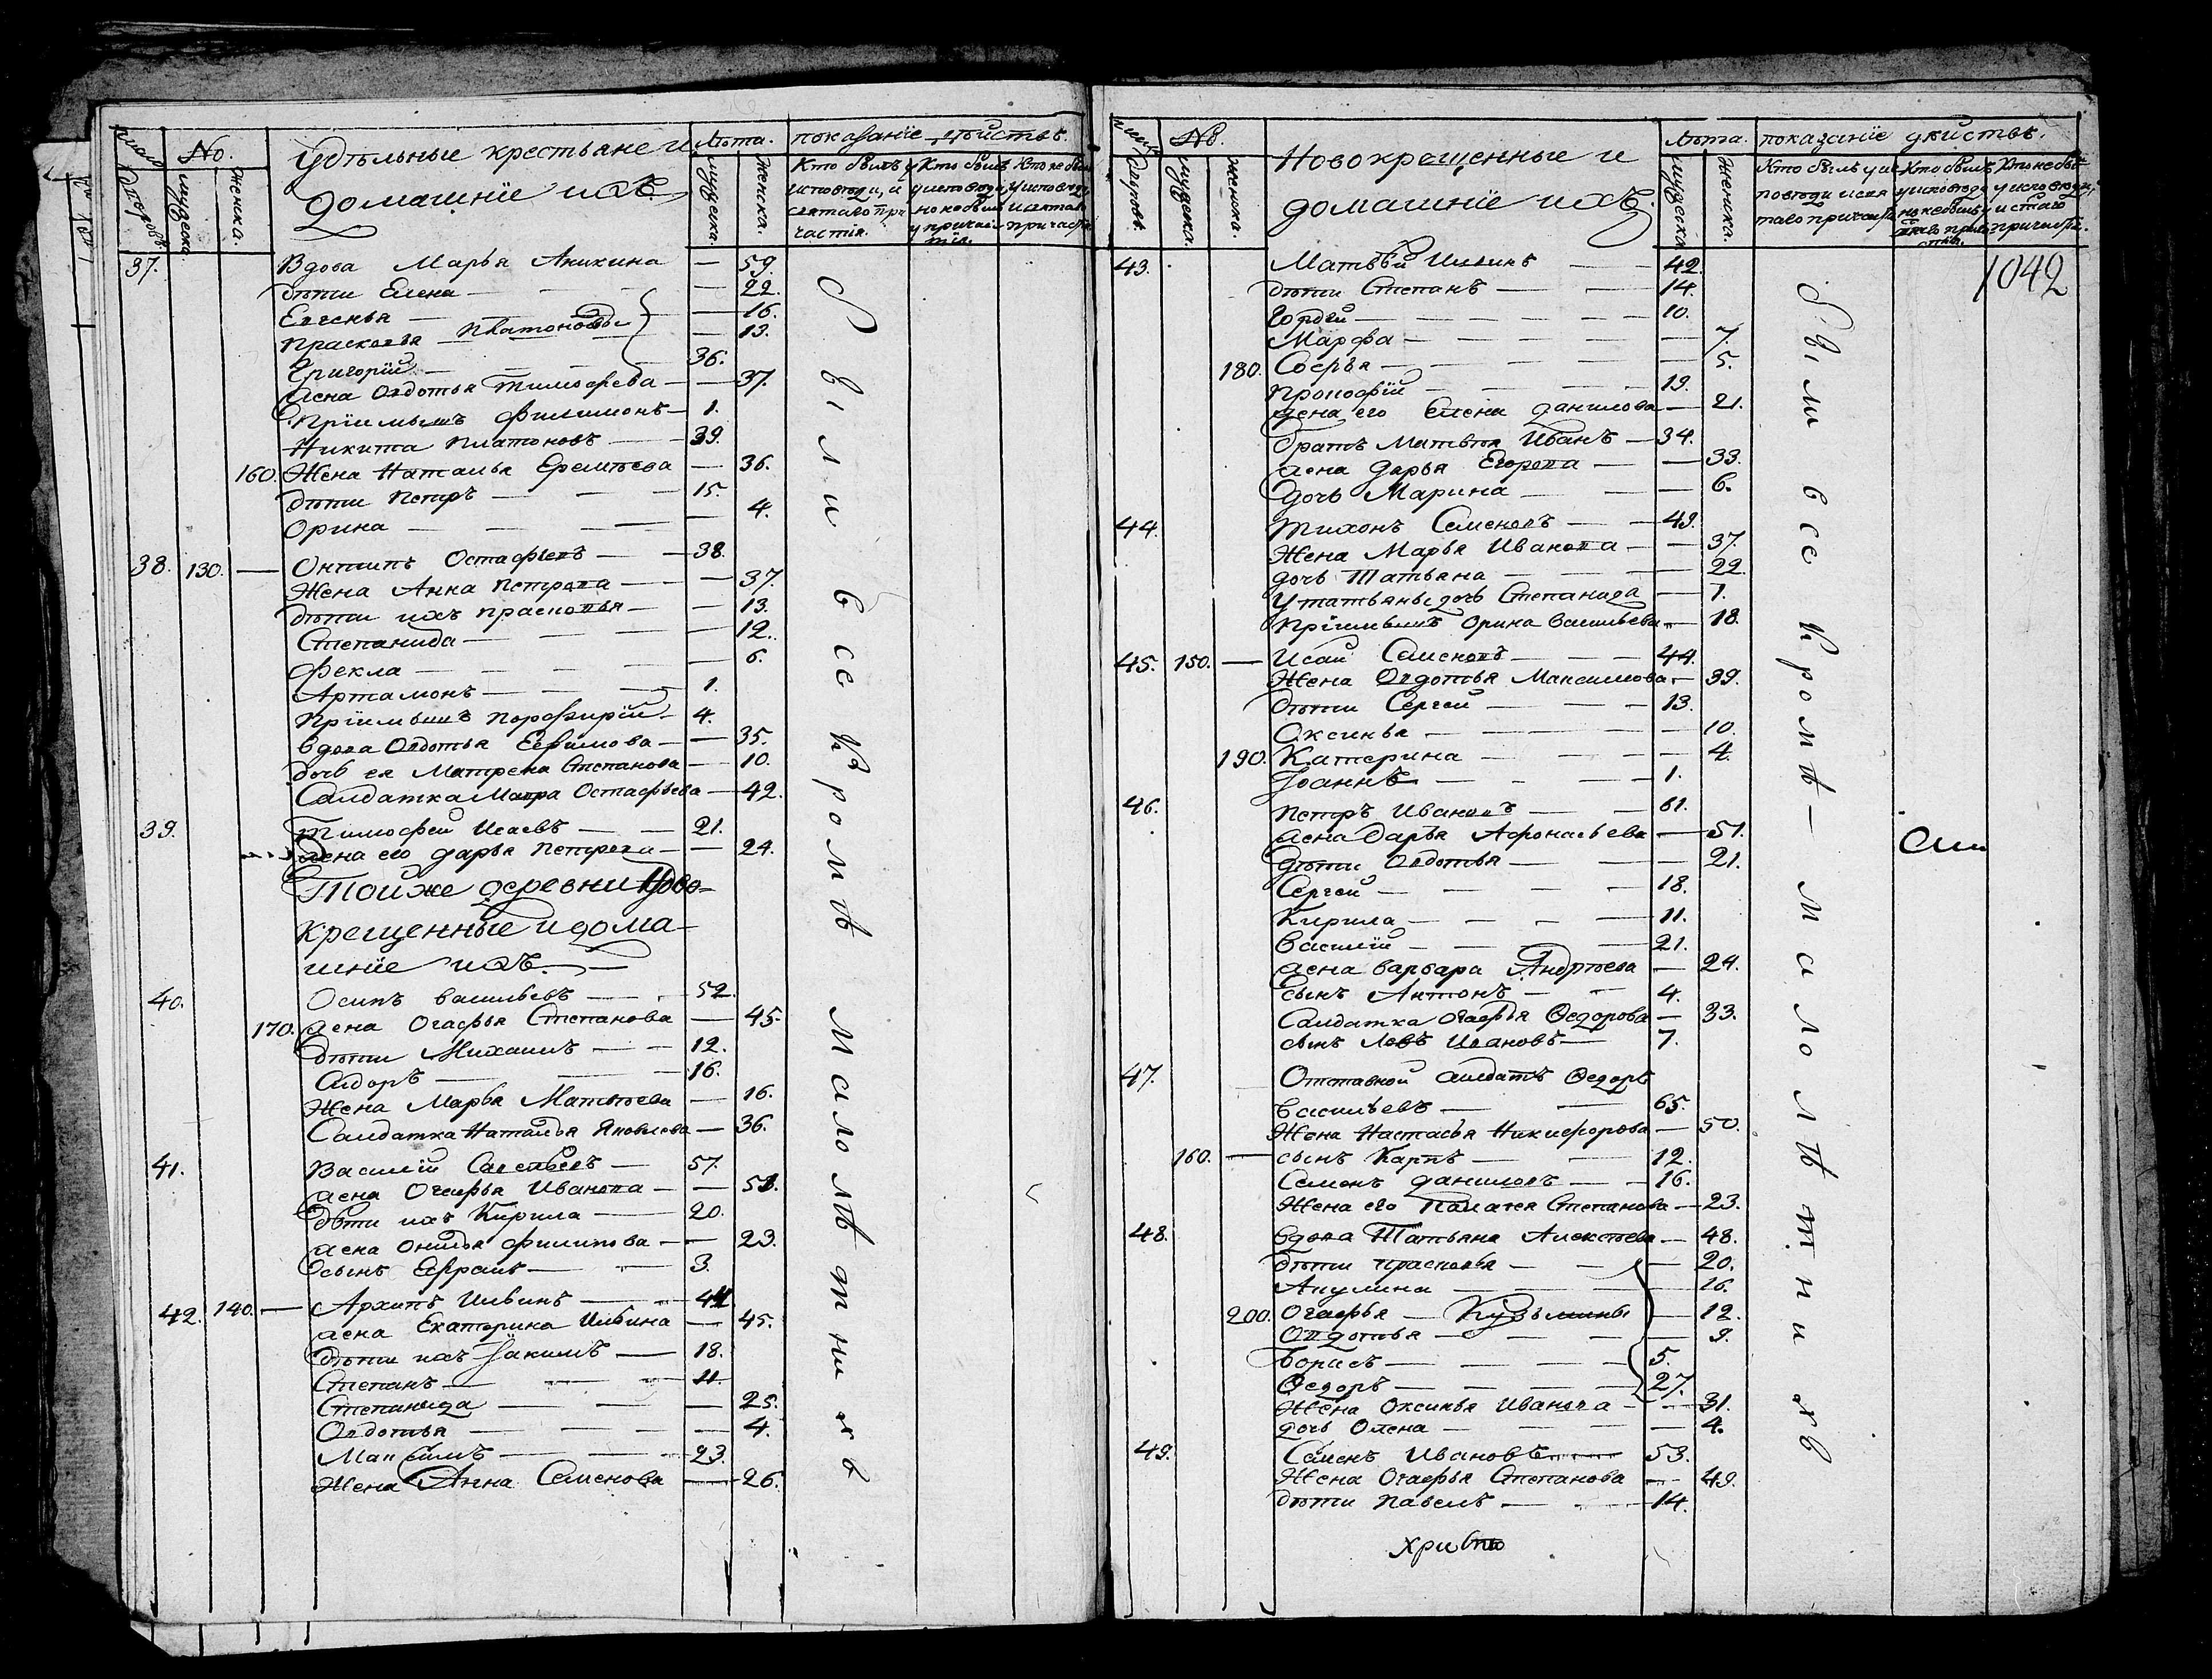 No.
Удѣльные крестьяне и
домашніе ихъ
Лѣта.
показаніе дѣйствъ.
мужеска.
женска.
мужеска.
женска.
Кто былъ у исповѣди, и святаго причастія.
Кто былъ у исповѣди, но не былъ у причастія.
37. Вдова Марья Аникина — 59.
дѣти Елена — 22.
Евгенья — 16.
Прасковья — Платоновы — 13.
Григорій — 36.
Жена Овдотья Тимофеева — 37.
Пріимышъ Филимонъ — 1.
Никита Платоновъ — 39.
160. Жена Наталья Еремѣева — 36.
дѣти Петръ — 15.
Орина — 4.
38. 130. — Онтипъ Остафьевъ — 38.
Жена Анна Петрова — 37.
дѣти ихъ прасковья — 13.
Степанида — 12.
Фекла — 6.
Артамонъ — 1.
Пріимышъ порфирій — 4.
вдова Овдотья Ефимова — 35.
дочь ея Матрена Степанова — 10.
Салдатка Мавра Остафьева — 42.
39. Тимофей Исаевъ — 21.
жена его дарья Петрова — 24.
Тойже деревни Ново-
крещенные и дома-
шніе ихъ.
40. Осипъ васильевъ — 52.
170. жена Огафья Степанова — 45.
дѣти Михаилъ — 12.
Сидоръ — 16.
Жена Марья Матвѣева — 16.
Салдатка Наталья Яковлева — 36.
41. Василій Савельевъ — 57.
жена Огафья Иванова — 53.
дѣти ихъ Кирила — 20.
жена филипова — 23.
сынъ Ефремъ — 3.
42. 140. — Архипъ Ильинъ — 44
жена Екатерина Ильина — 45.
дѣти ихъ Іакимъ — 18.
Степанъ — 11.
Степанида — 25.
Овдотья — 4.
Максимъ — 23.
Жена Анна Семенова — 26.
были все кромѣ малолѣтныхъ
No.
Новокрещенные и
домашніе ихъ.
Лѣта.
показаніе дѣйствъ.
мужеска.
женска.
мужеска
женска.
1042
43. Матвѣй Ильинъ — 42.
дѣти Степанъ — 14.
Гордей — 10.
Марфа — 7.
180. Софья — 5.
Прокофій — 19.
жена его Елена данилова — 21.
братъ Матвѣя Иванъ — 34.
жена дарья Егорова — 33.
дочь Марина — 6.
44. Тихонъ Семеновъ — 49.
Жена Марья Иванова — 37.
дочь Татьяна — 22.
У татьяны дочь Степанида — 1.
Пріимышъ Орина васильева — 18.
45. 150. — Исай Семеновъ — 44.
Жена Овдотья Максимова — 39.
дѣти Сергей — 13.
Оксинья — 10.
190. Катерина — 4.
Іоаннъ — 1.
46. Петръ Ивановъ — 61.
жена дарья Афонасьева — 51.
дѣти Овдотья — 21.
Сергей — 18.
Кирила — 11.
василій — 21.
жена варвара Андрѣева — 24.
сынъ Антонъ — 4.
Салдатка Огафья Ѳедорова — 33.
сынъ Левъ Ивановъ — 7.
47. Отставной салдатъ Ѳедоръ
васильевъ — 65.
Жена Настасья Никифорова — 50.
160. — сынъ Карпъ — 12.
Семенъ даниловъ — 16.
Жена его Палагея Степанова — 23.
48. вдова Татьяна Алексѣева — 48.
дѣти прасковья — 20.
Акулина — 16.
200. Огафья — Кузьмины — 12.
Овдотья — 9.
борисъ — 5.
Ѳедоръ — 27.
Жена Оксинья Иванова — 31.
дочь Олена — 4.
49. Семенъ Ивановъ — 53.
Жена Огафья Степанова — 49.
дѣти павелъ — 14.
были все кромѣ — малолѣтныхъ